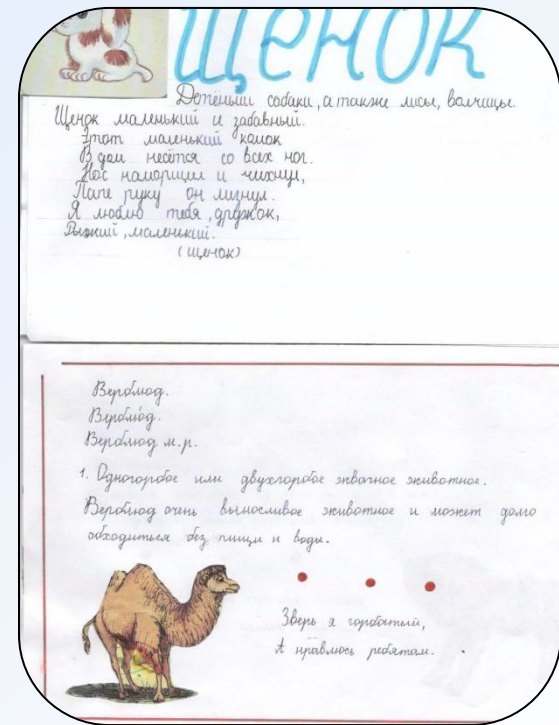 щенок
Детёныш собаки, а также лисы, волчицы.
Щенок маленький и забавный.
Этот маленький комок
В дом несётся со всех ног.
Нос наморщил и чихнул,
Папе руку он лизнул.
Я люблю тебя, дружок,
Рыжий, маленький.
(щенок)
Верблюд.
Верблюд.
Верблюд м.р.
1. Одногорбое или двухгорбое жвачное животное.
Верблюд очень выносливое животное и может долго
обходиться без пищи и воды.
Зверь я горбатый,
А нравлюсь ребятам.